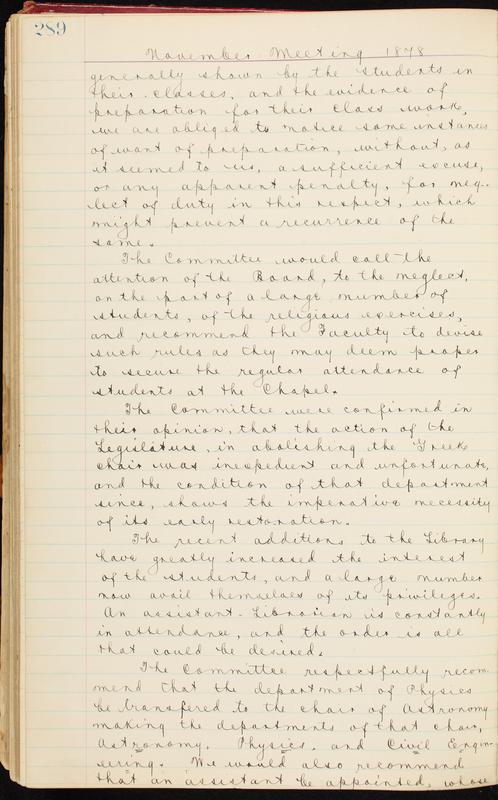 289
November Meeting 1878
generally shown by the students in
their classes, and the evidence of
preparation for their class work,
we are obliged to notice some instances
of want of preparation, without, as
it seemed to us, a sufficient excuse,
or any apparent penalty, for neg-
lect of duty in this respect, which
might prevent a recurrence of the
same.
The Committee would call the
attention of the Board, to the neglect,
on the part of a large number of
students, of the religious exercises,
and recommend the Faculty to devise
such rules as they may deem proper
to secure the regular attendance of
students at the Chapel.
The Committee were confirmed in
their opinion, that the action of the
Legislature, in abolishing the Greek
chair was inexpedient and unfortunate,
and the condition of that department
since, shows the imperative necessity
of its early restoration.
The recent additions to the Library
have greatly increased the interest
of the students, and a large number
now avail themselves of its privileges.
An assistant Librarian is constantly
in attendance, and the order is all
that could be desired.
The Committee respectfully recom-
mend that the department of Physics
be transferred to the chair of Astronomy
making the departments of that chair,
Astronomy, Physics, and Civil Engin-
eering. We would also recommend
that an assistant be appointed, whose